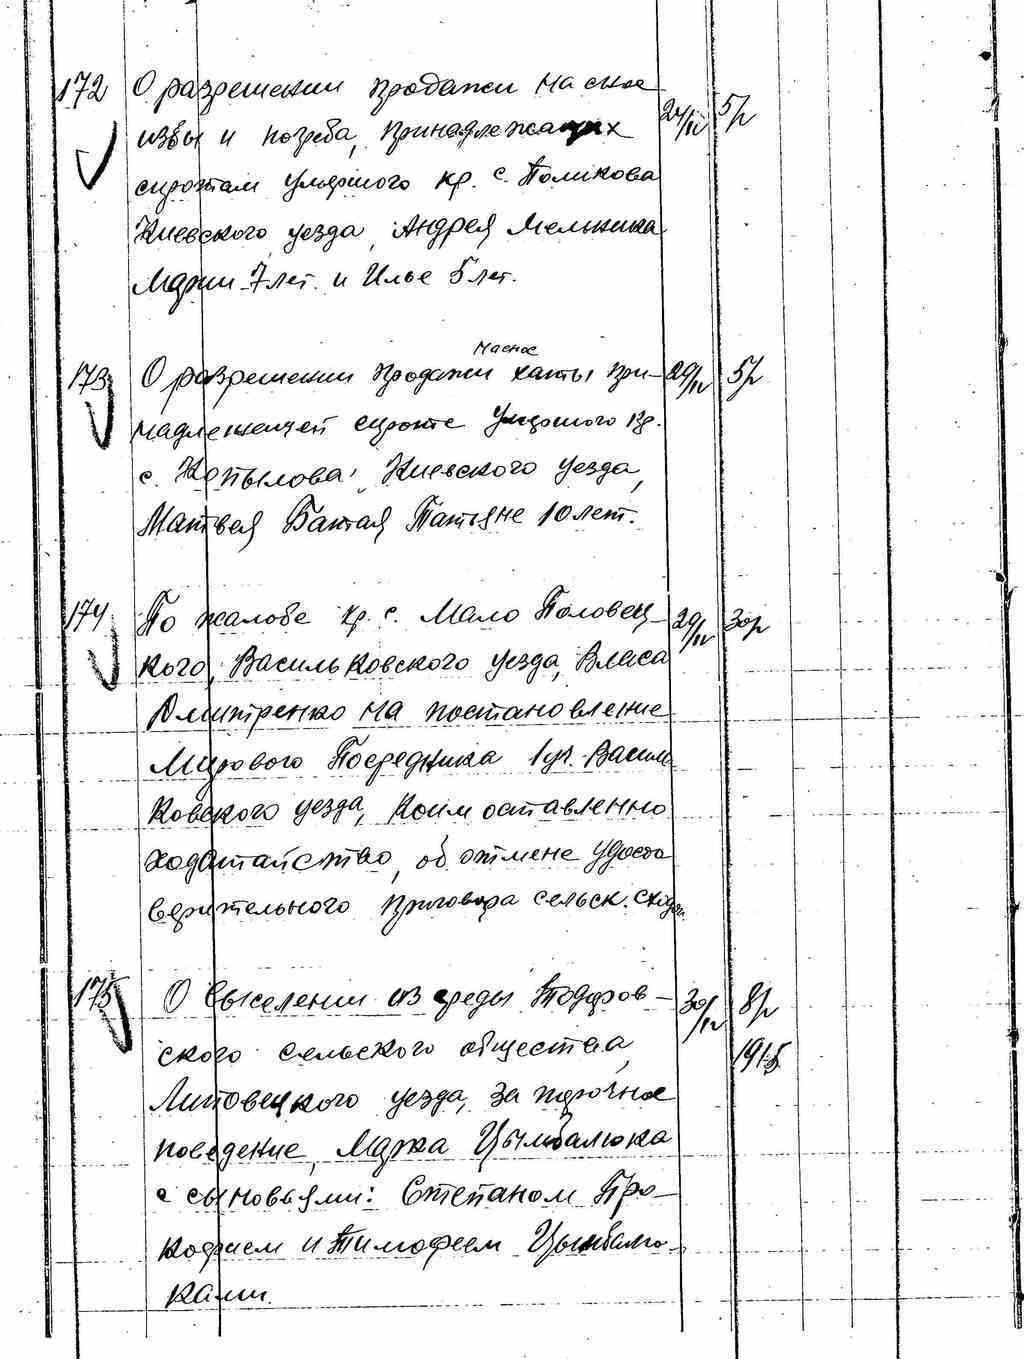 172 О разрешении продажи на снос 24/IV 5р
избы и погреба, принадлежащих
сиротам умершого кр. с.
Киевского уезда, Андрея Мельника
Марии 7 лет. и Илье 5 лет.
173 О разрешении продажи на снос хаты при- 29/IV 5р
надлежащей сироте умершого кр.
с. Копылова, Киевского уезда,
Матвея Бахтая Татьяне 10 лет.
174 По жалобе кр. с. Мало Половец- 29/IV 30р
кого, Васильковского уезда, Власа
Дмитренко на постановление
Мирового Посредника 1 уч. Василь
ковского уезда, коим оставленно
ходатайство, об отмене удосто
верительного приговора сельск. схода.
175 О выселении из среды Тодоров- 30/IV 8р
ского сельского общества, 1915
Липовецкого уезда, за порочное
поведение, Марка Цымбалюка
с сыновьями: Степаном Про-
кофием и Тимофеем Цымбалю-
ками.